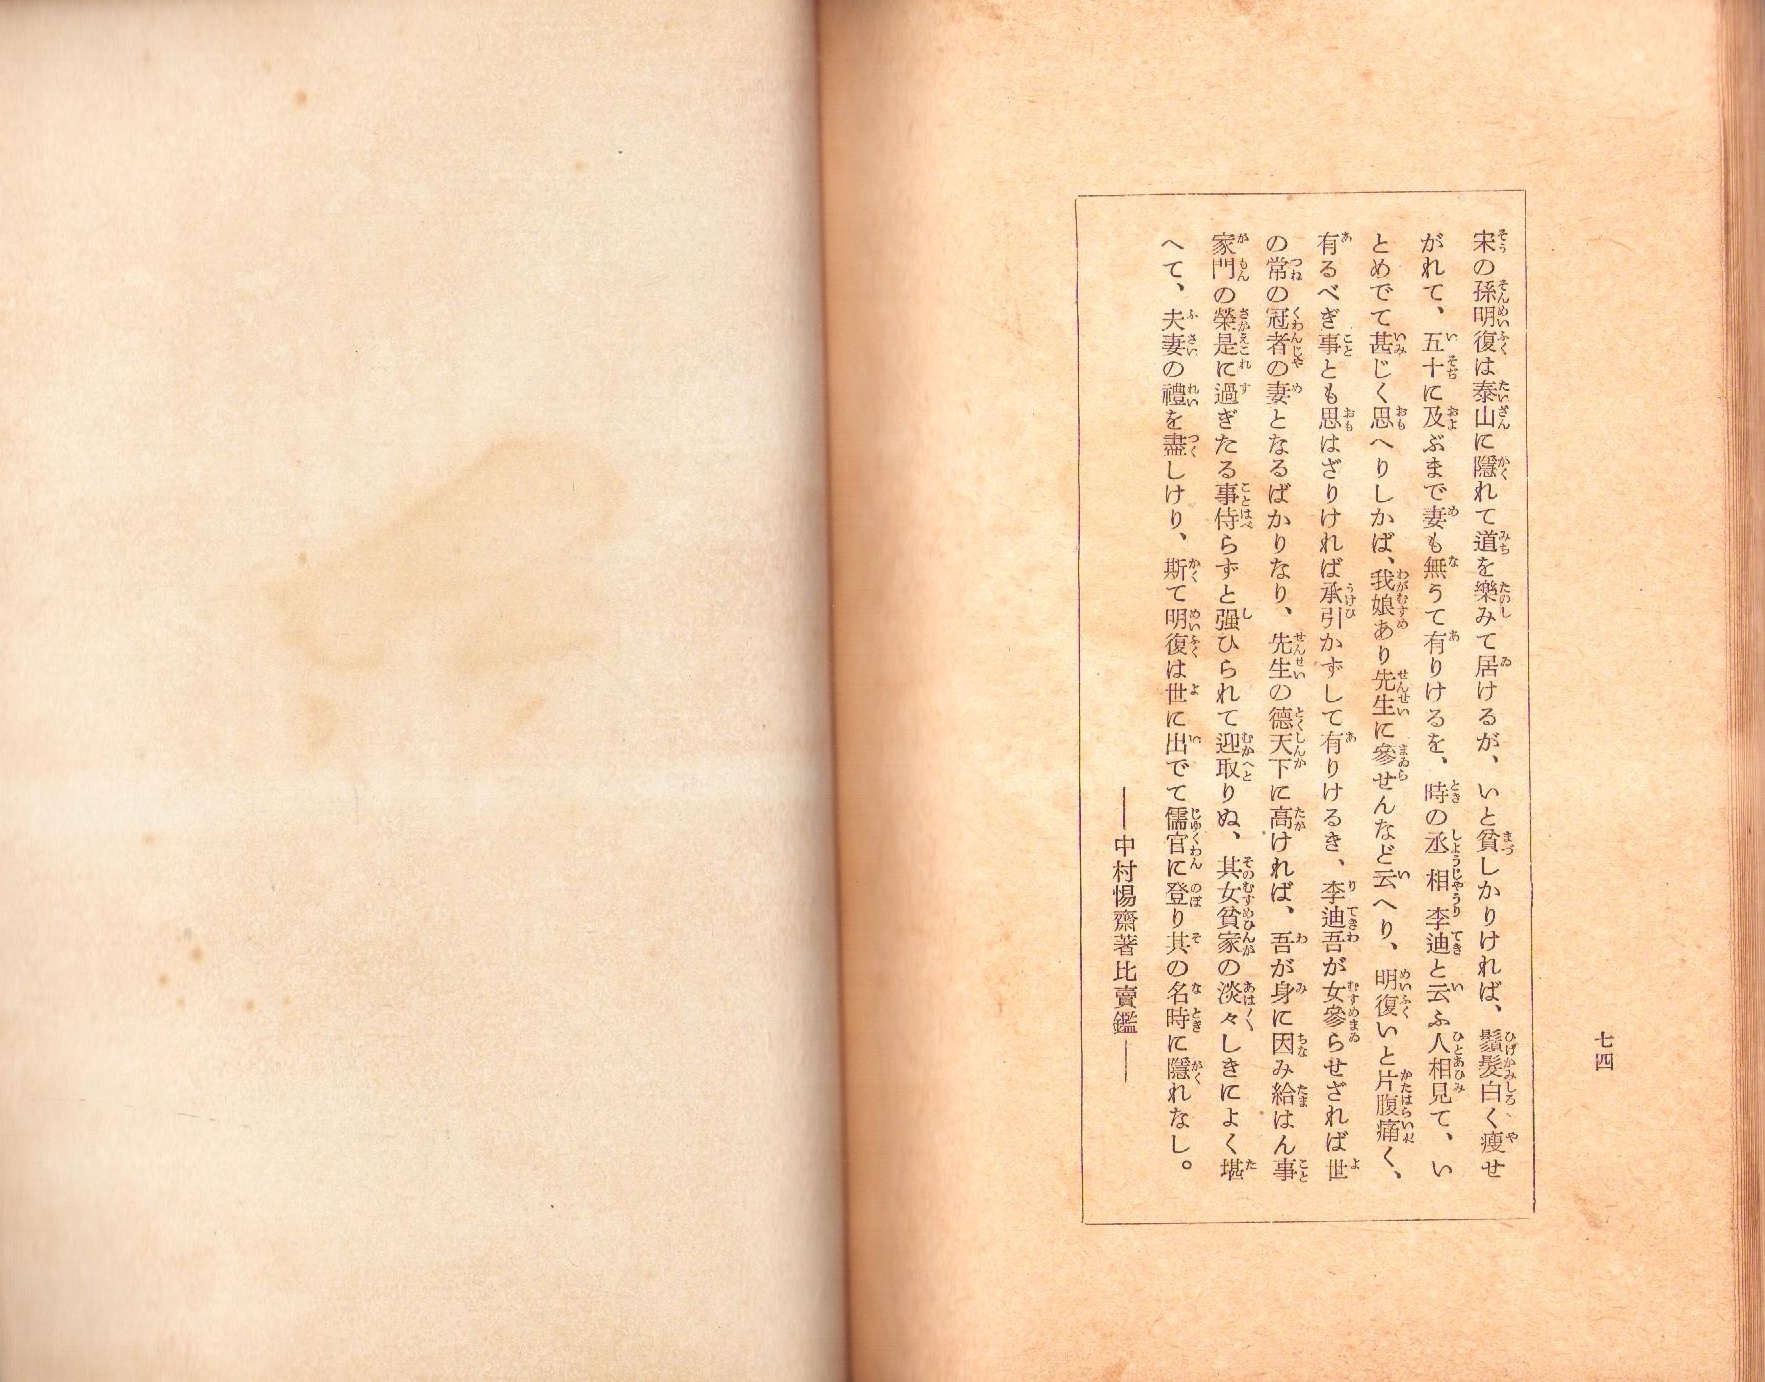 七四
宋の孫明復は泰山に隱れて道を樂みて居けるが、いと貧しかりければ、鬚髮白く瘦せ
がれて、五十に及ぶまで妻も無うて有りけるを、時の丞相李迪と云ふ人相見て、い
とめでて甚じく思へりしかば、我娘あり先生に參せんなど云へり、明復いと片腹痛く、
有るべぎ事とも思はざりければ承引かずして有りけるき、李迪吾が女參らせざれば世
の常の冠者の妻となるばかりなり、先生の德天下に高ければ、吾が身に因み給はん事
家門の榮是に過ぎたる事侍らずと强ひられて迎取りぬ、其女貧家の淡々しきによく堪
へて、夫妻の禮を盡しけり、斯て明復は世に出でて儒官に登り其の名時に隱れなし。
――中村惕齋著比賣鑑――